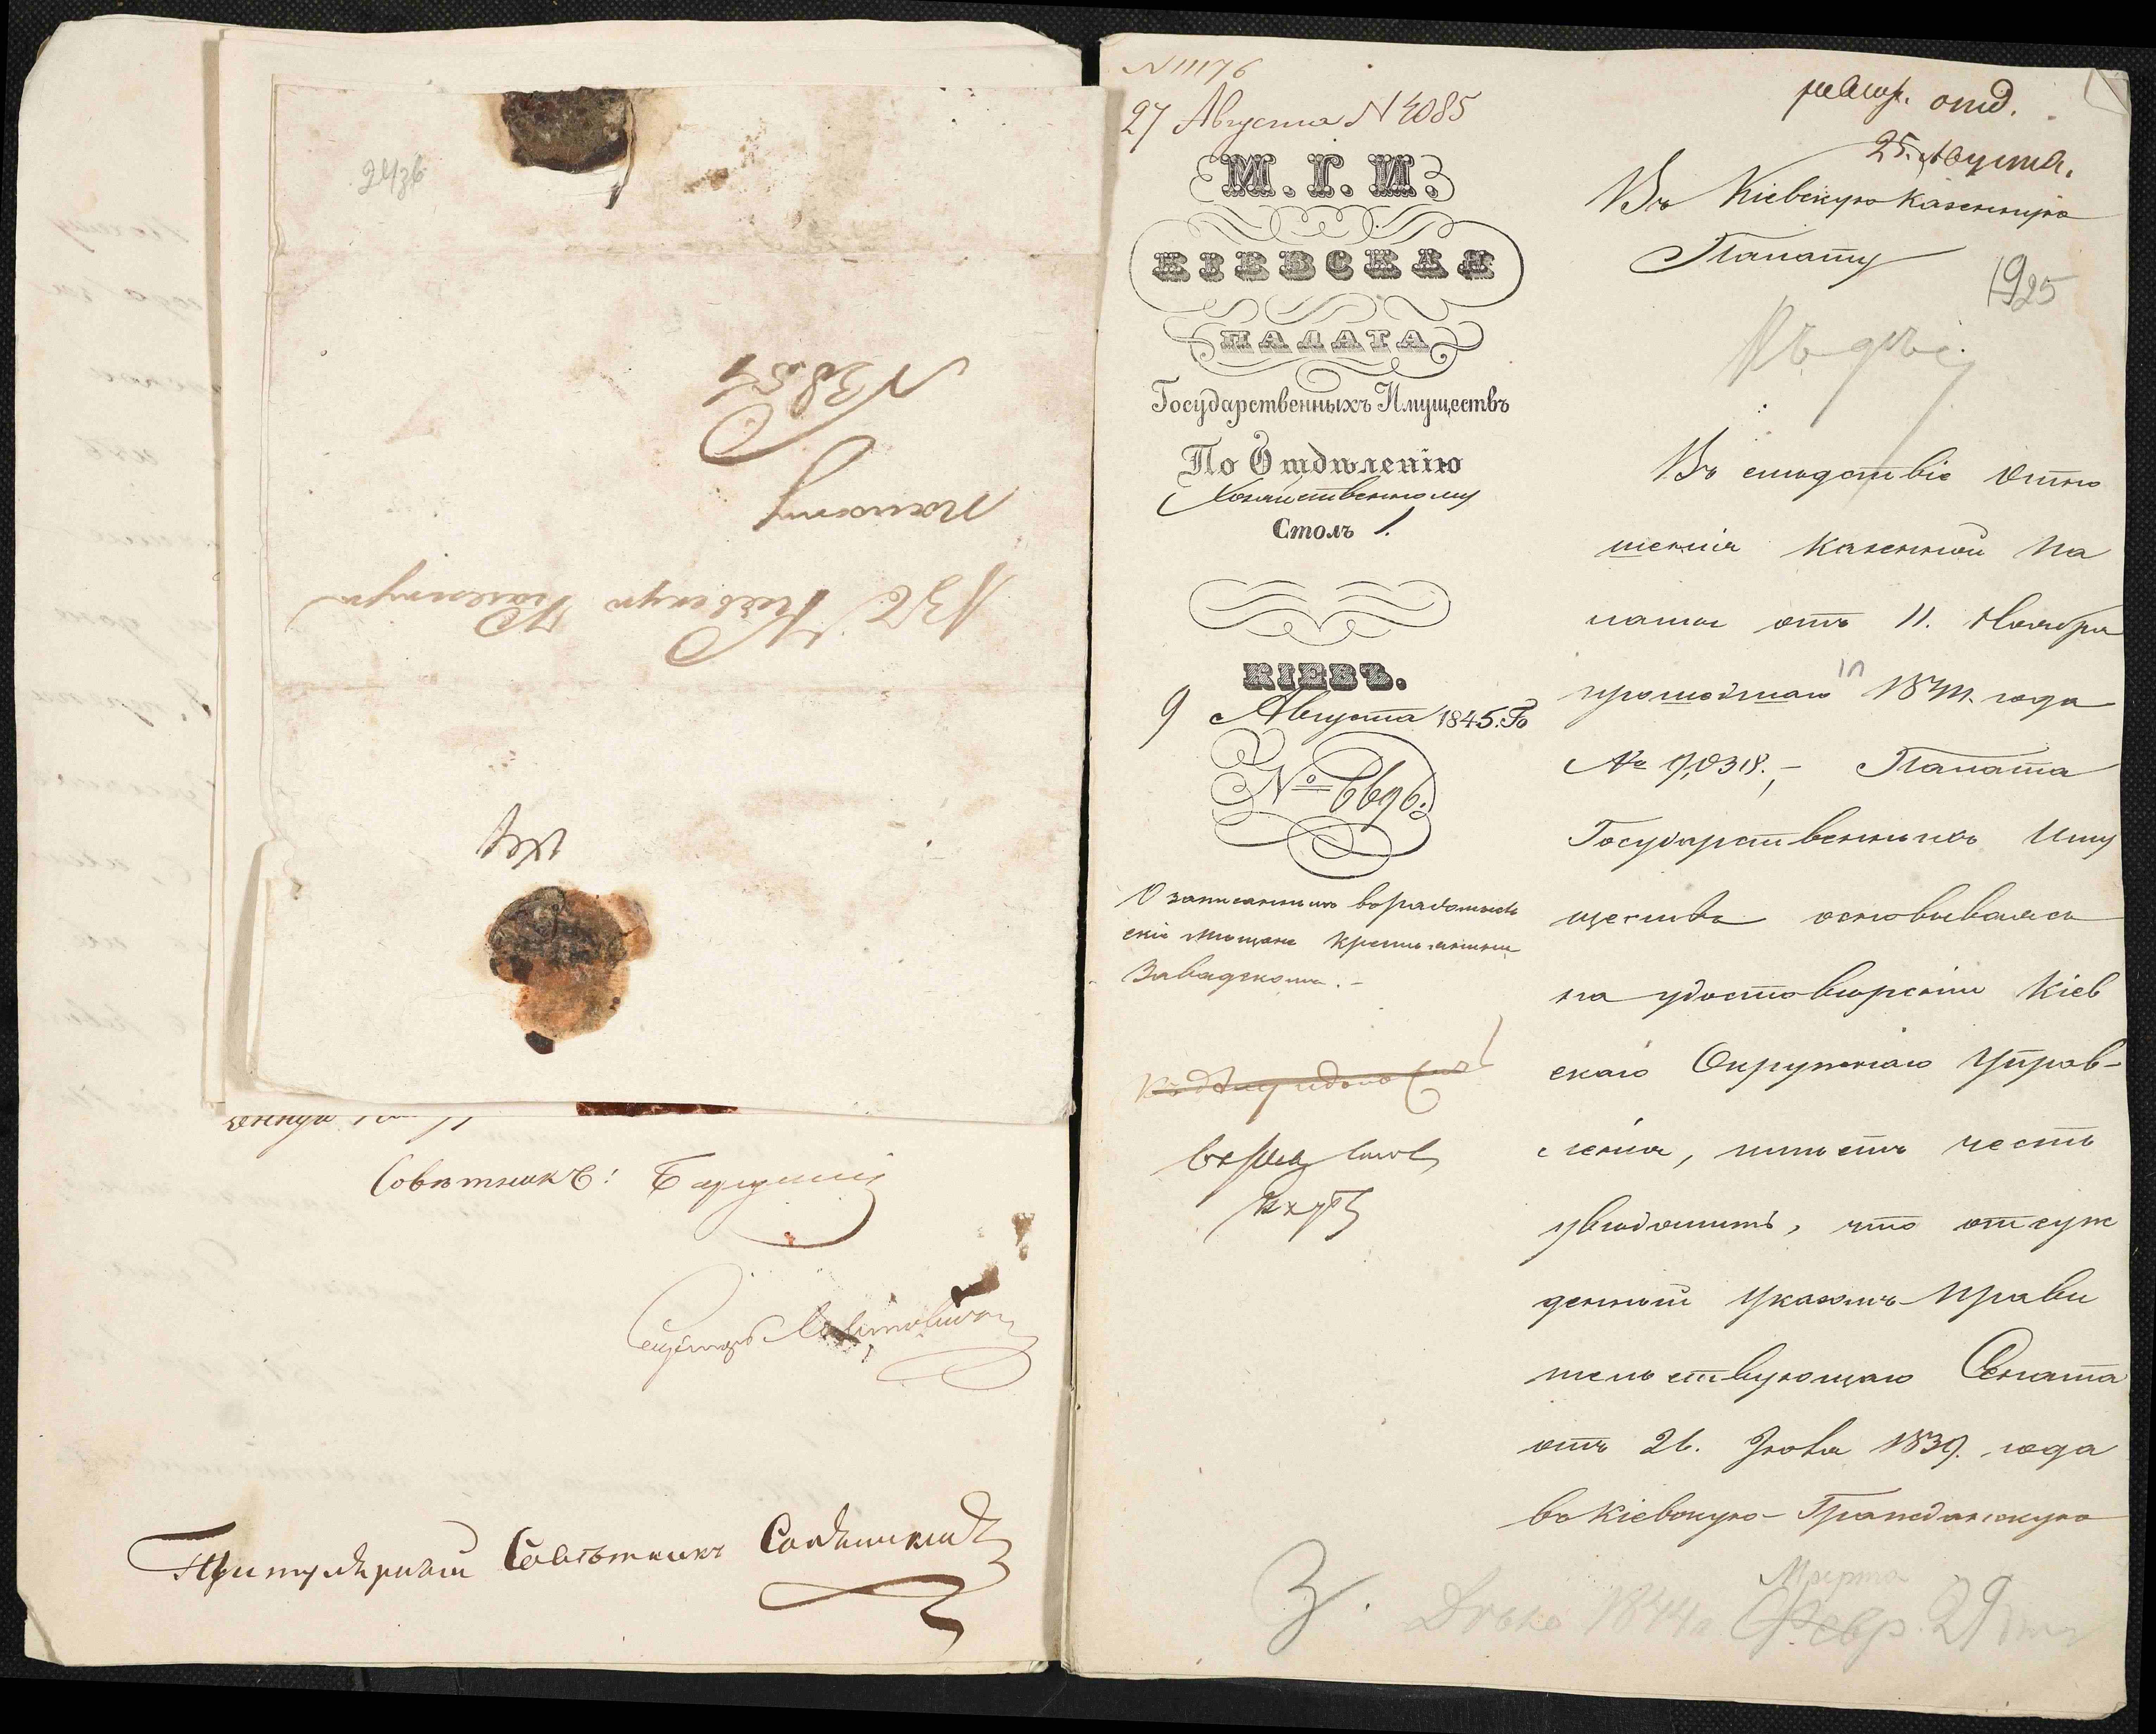 2436
N 3851
палату
Въ Кіевскую Казенную
Совѣтникъ:
Секретарь
Титулярный Совѣтникъ
N 11176
27 Августа N 4085
М. Г. И.
КІЕВСКАЯ
ПАЛАТА
Государственныхъ Имуществъ
По Отдѣленію
Хозяйственному
Столъ 1.
КІЕВЪ.
9 Августа 1845. Го
№ 6696.
О записанномъ въ Радомысль
скіе мѣщане крестьянинѣ
Завадскомъ. -
ревиз. отд.
25. Августа.
Въ Кіевскую Казенную
Палату
1925
Къ дѣлу
Въ слѣдствіе отно
шенія Казенной Па
латы отъ 11. Ноября
прошедшаго 1844. года
№ 9,0318., - Палата
Государственныхъ Иму
ществъ основываясь
на удостовѣреніи Кіев
скаго Окружнаго Управ-
ленія, имѣетъ честь
увѣдомить, что отсуж
денный указомъ Прави
тельствующаго Сената
отъ 26. 1839. года
въ Кіевскую Гражданскую
Марта
Дѣло 1844 Февр. 29